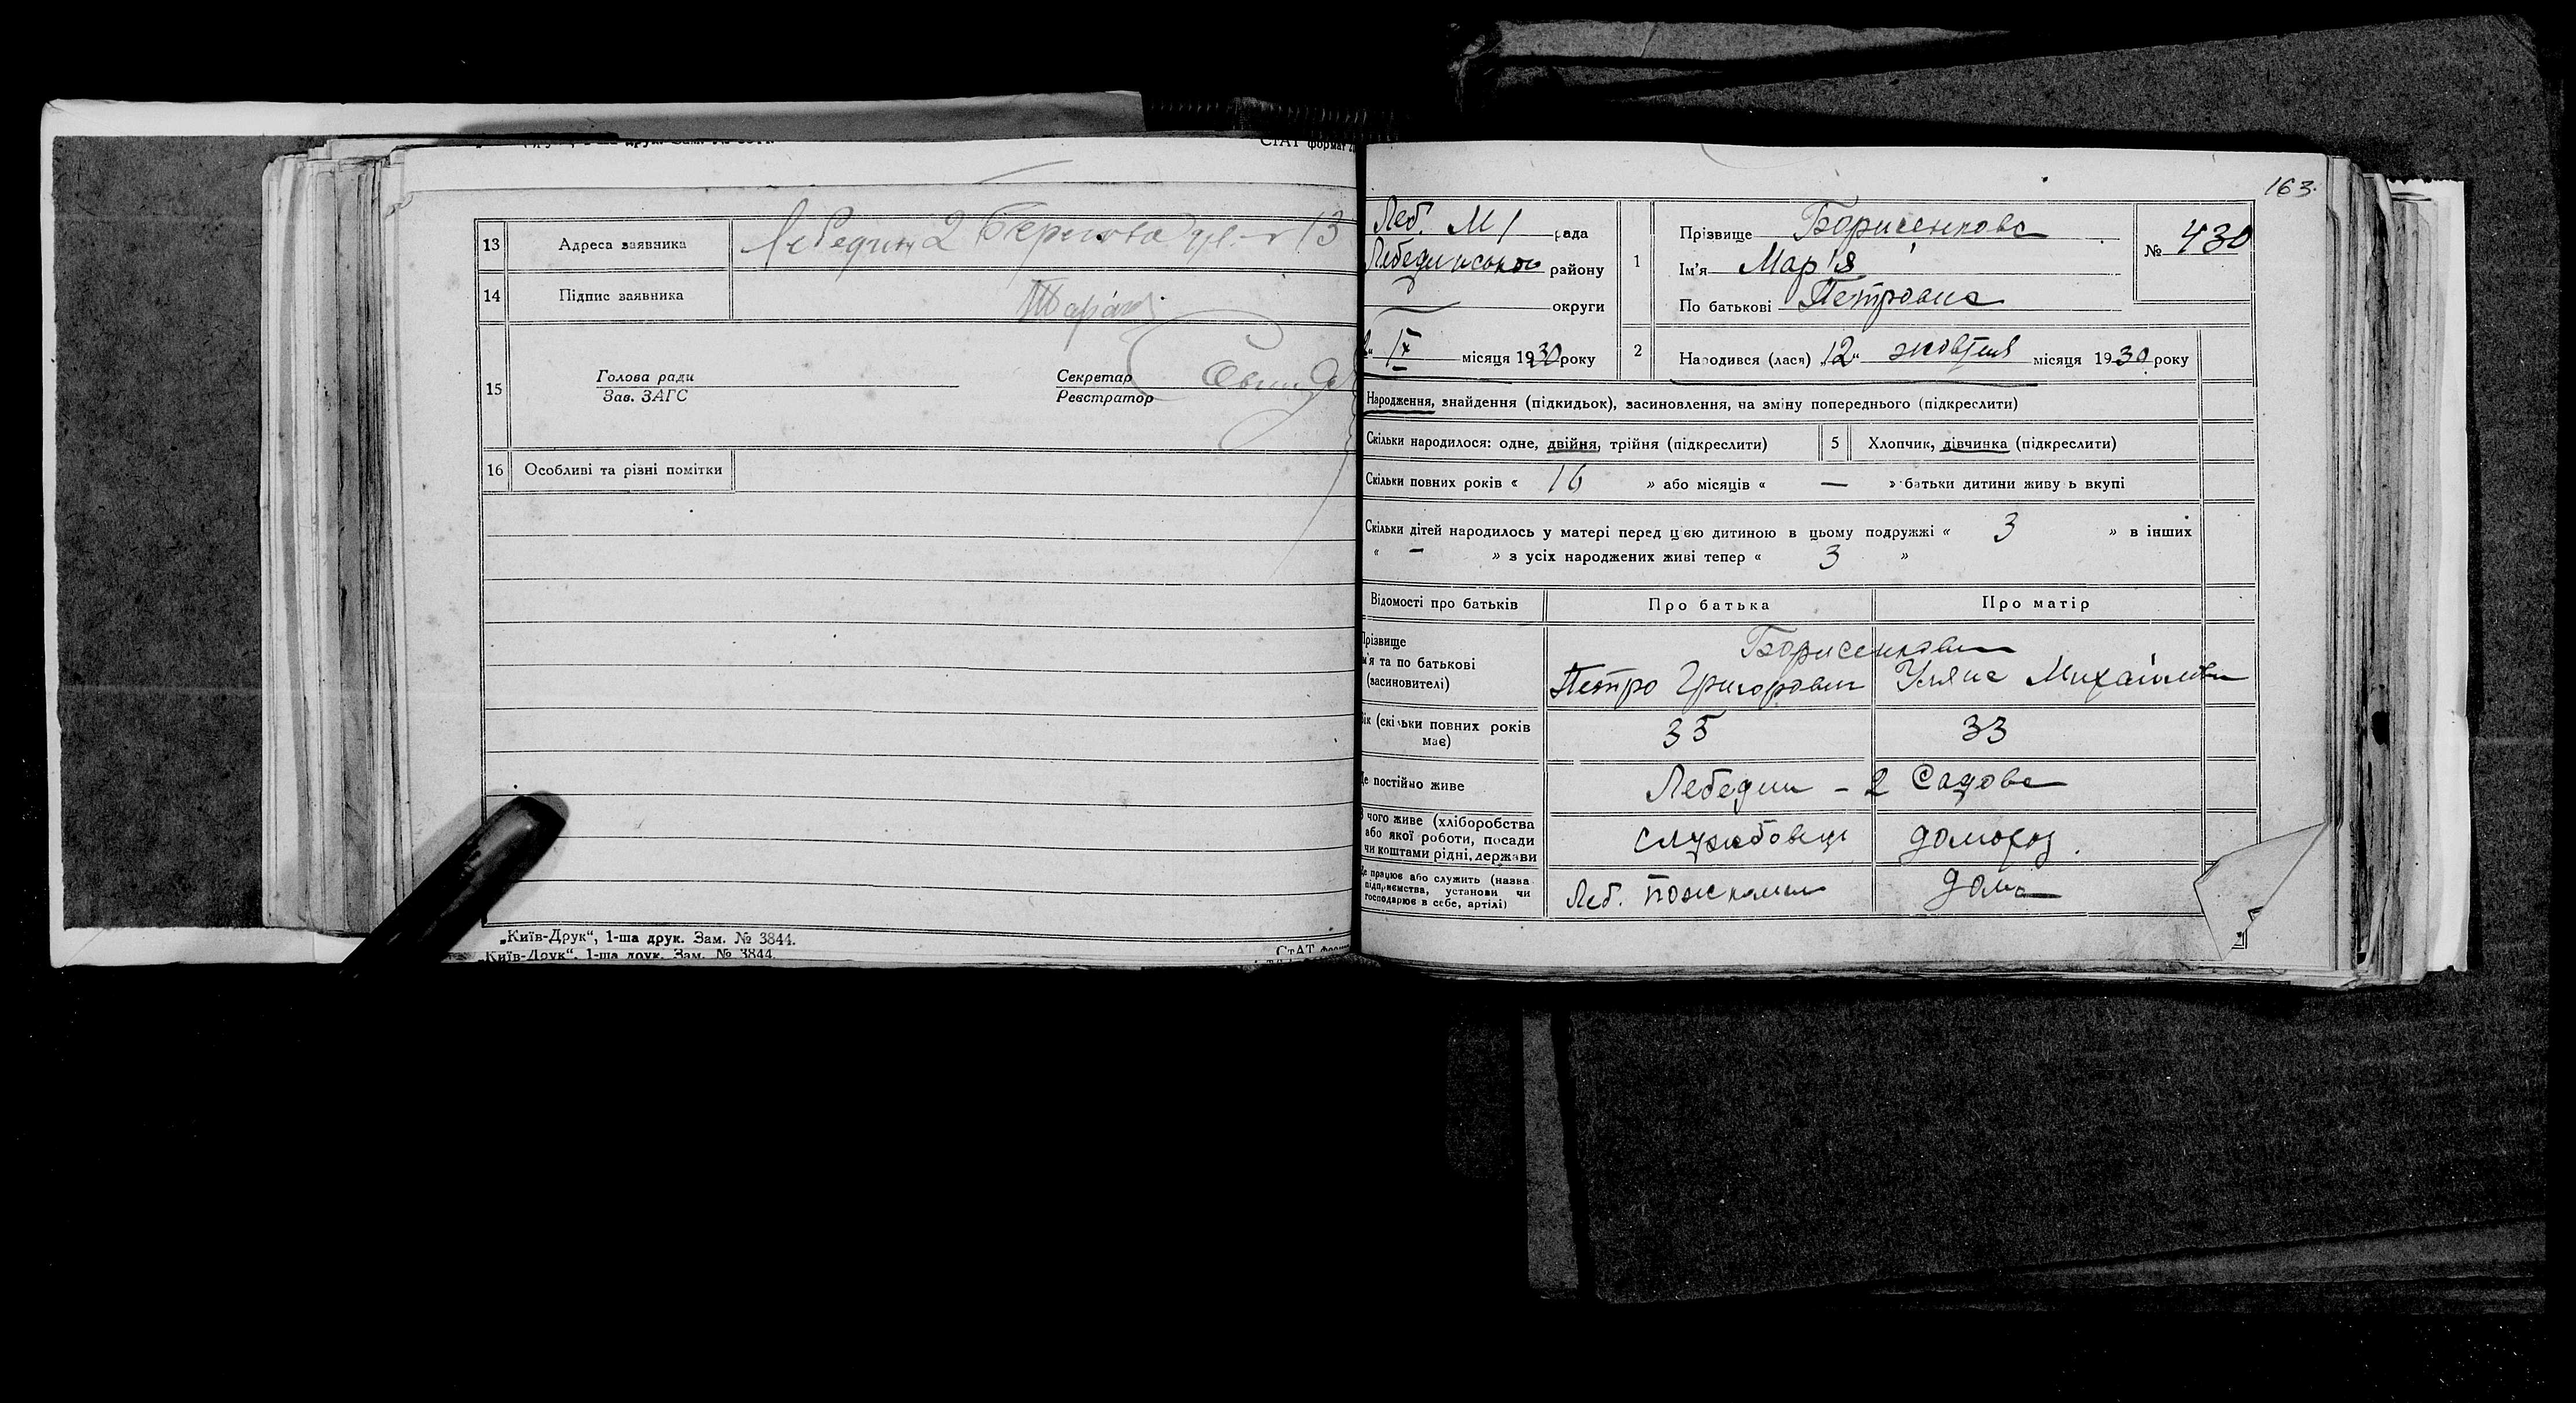 163.
13 Адреса заявника Лебедин 2 Берегова ул. 13
14 Підпис заявника
15 Голова ради
Зав. ЗАГС
Секретар
Реєстратор
16 Особливі та різні помітки
„Київ-Друк“, 1-ша друк. Зам. № 3844.
СтАТ
„Київ-Друк“, 1-ша друк. Зам. № 3844.
Леб. М 1 рада
Лебединського району
округи
IX місяця 1930 року
1 Прізвище Борисенкова
Ім'я Мар'я
По батькові Петровна
№ 430
2 Народився (лася) „12“ жовтня місяця 1930 року
Народження, знайдення (підкидьок), засиновлення, на зміну попереднього (підкреслити)
Скільки народилося: одне, двійня, трійня (підкреслити) 5 Хлопчик, дівчинка (підкреслити)
Скільки повних років « 16 » або місяців « — » батьки дитини живуть вкупі
Скільки дітей народилось у матері перед цією дитиною в цьому подружжі « 3 » в інших
« — » з усіх народжених живі тепер « 3 »
Відомості про батьків Про батька Про матір
Прізвище
ім'я та по батькові
(засиновителі)
Борисенкови
Петро Григорович Уляна Михайловн
Вік (скільки повних років
має) 35 33
Де постійно живе Лебедин – 2 Садова
З чого живе (хліборобства
або якої роботи, посади
чи коштами рідні, держави
службовець домогосп.
Де працює або служить (назва
підприємства, установи чи
господарює в себе, артілі)
Леб. дома